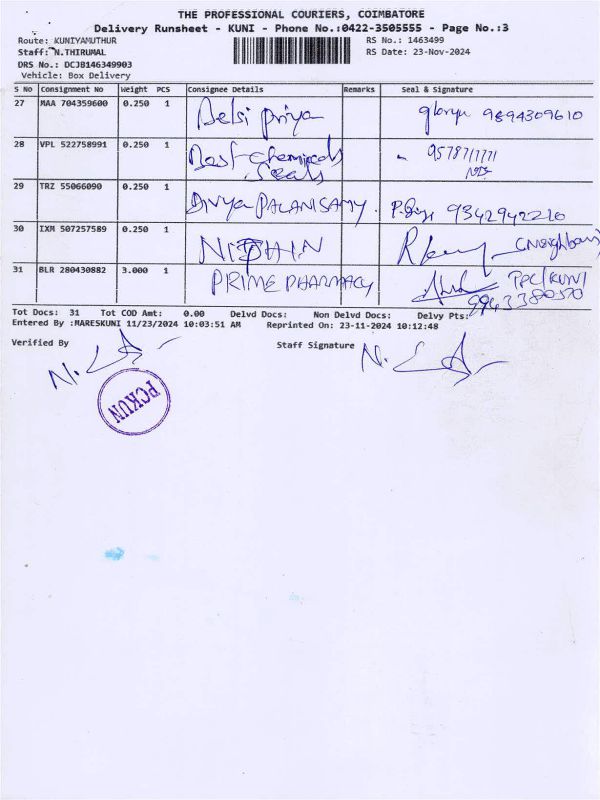 THE PROFESSIONAL COURIERS, COIMBATORE
Delivery Runsheet - KUNI - Phone No.:0422-3505555 - Page No.:3
Route: KUNIYAMUTHUR RS No.: 1463499
Staff: N.THIRUMAL RS Date: 23-Nov-2024
DRS No.: DCJB146349903
Vehicle: Box Delivery
S No Consignment No Weight PCS Consignee Details Remarks Seal & Signature
27 MAA 704359600 0.250 1 Delsi Priya 9894309610
28 VPL 522758991 0.250 1 Best Chemicals
Seals
29 TRZ 55066090 0.250 1 DIVYA PALANISAMY. 9342942210
30 IXM 507257589 0.250 1 NITHIN (Neighbour)
31 BLR 280430882 3.000 1 PRIME PHARMACY TPC/KUNI
9943380570
Tot Docs: 31 Tot COD Amt: 0.00 Delvd Docs: Non Delvd Docs: Delvy Pts:
Entered By :MARESKUNI 11/23/2024 10:03:51 AM Reprinted On: 23-11-2024 10:12:48
Verified By Staff Signature
PCKUN